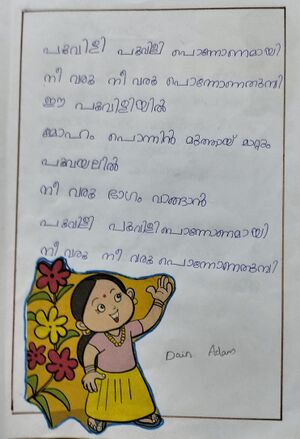 പൂവിളി പൂവിളി പൊന്നോണമായി
നീ വരൂ നീ വരൂ പൊന്നോണത്തുമ്പി
ഈ പൂവിളിയിൽ
മോഹം പൊന്നിൻ മുത്തായ് മാറ്റും
പൂവയലിൽ
നീ വരൂ ഭാഗം വാങ്ങാൻ
പൂവിളി പൂവിളി പൊന്നോണമായി
നീ വരൂ നീ വരൂ പൊന്നോണത്തുമ്പി
Dain Adam